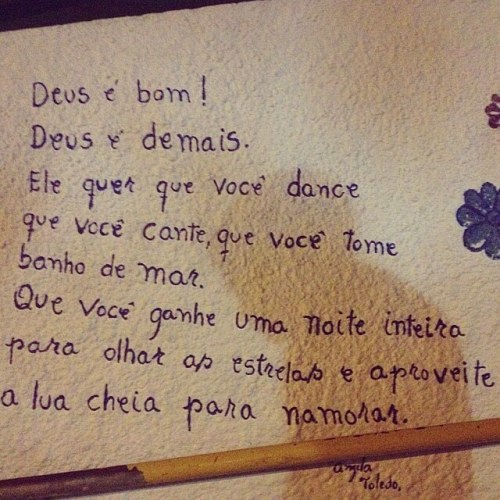 Deus é bom!
Deus é demais.
Ele quer que você dance
que você cante, que você tome
banho de mar.
Que você ganhe uma noite inteira
para olhar as estrelas e aproveite
a lua cheia para namorar.
Angela
Toledo.